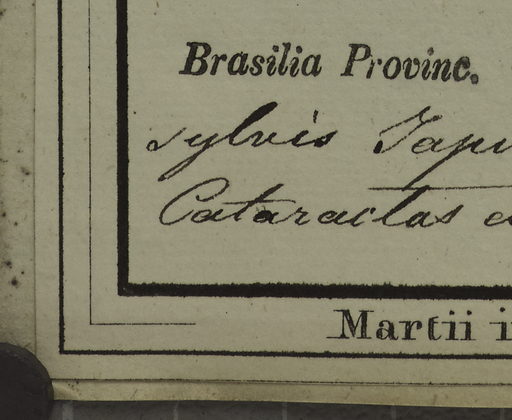 Brasilia Provinc.
sylvis Japu
Cataractas e
Martii i